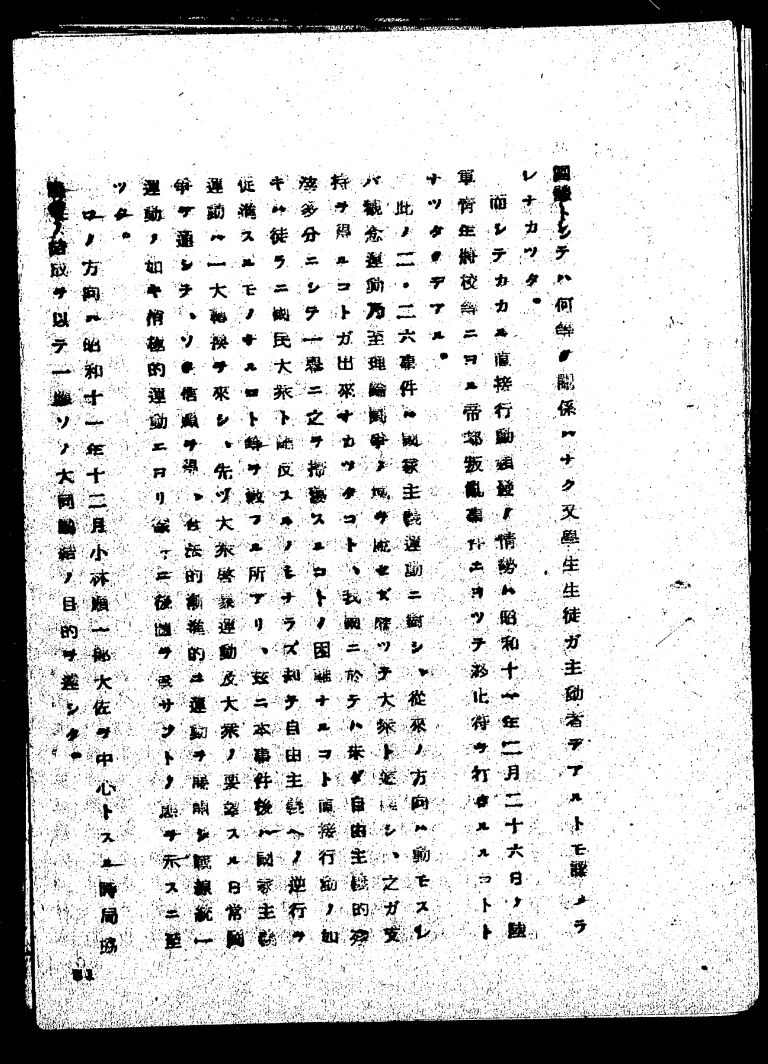 團體トシテハ何等ノ關係ハナク又學生生徒ガ主動者デアルトモ認メラ
レナカツタ。
而シテカカル直接行動頻發ノ情勢ハ昭和十一年二月二十六日ノ陸
軍青年將校等ニヨル帝都叛亂事件ニヨツテ終止符ヲ打タルルコトト
ナツタノデアル。
此ノ二・二六事件ハ國家主義運動ニ對シ、從來ノ方向ハ動モスレ
バ觀念運動乃至理論鬪爭ノ域ヲ脱セズ從ツテ大衆ト遊離シ、之ガ支
持ヲ得ルコトガ出來ナカツタコト、我國ニ於テハ未ダ自由主義的
多分ニシテ一擧ニ之ヲ掃蕩スルコトノ困難ナルコト直接行動ノ如
キハ徒ラニ國民大衆ト離反スルノミナラズ却テ自由主義ヘノ逆行ヲ
促進スルモノナルコト等ヲ教フル所アリ、玆ニ本事件後ハ國家主義
運動ハ一大轉換ヲ來シ、先ヅ大衆啓蒙運動及大衆ノ要望スル日常鬪
爭ヲ通シテ、ソノ信頼ヲ得、合法的漸進的ニ運動ヲ展開シ戰線統一
運動ノ如キ積極的運動ニヨリ ニ後圖ヲ サントノ ヲ示スニ至
ツタ。
ロノ方向ハ昭和十一年十二月小林順一郎大佐ヲ中心トスル時局協
議會ノ結成ヲ以テ一應ソノ大同團結ノ目的ヲ達シタ。
51